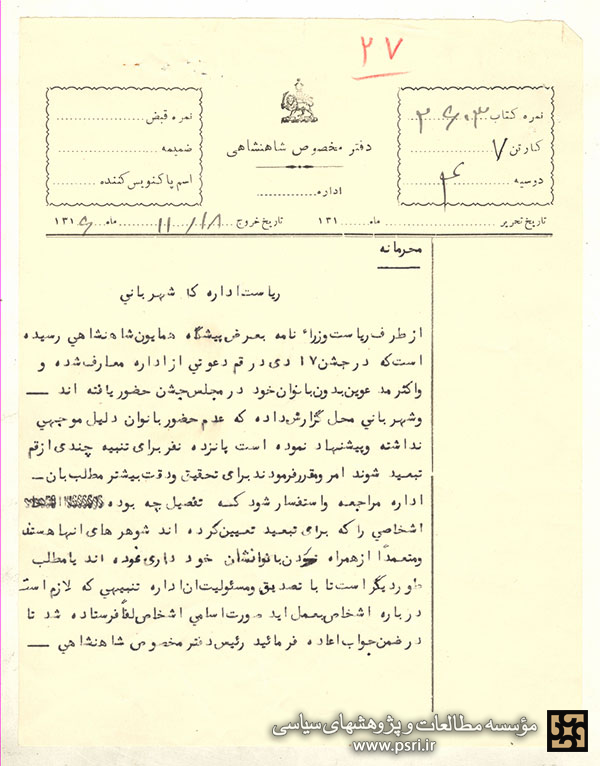 ۲۷
نمره کتاب
کارتن ۷
دوسیه ۴
دفتر مخصوص شاهنشاهی
اداره
نمره قبض
ضمیمه
اسم پاکنویس کننده
تاریخ تحریر ماه ۱۳۱
تاریخ خروج ۱۱/۱۸ ماه ۱۳۱۶
محرمانه
ریاست اداره کل شهربانی
از طرف ریاست وزراء نامه بعرض پیشگاه همایون شاهنشاهی رسیده
است که در جشن ۱۷ دی در قم دعوتی از اداره معارف شده و
واکثر مدعوین بدون بانوان خود در مجلس جشن حضور یافته اند —
وشهربانی محل گزارش داده که عدم حضور بانوان دلیل موجهی
نداشته وپیشنهاد نموده است پانزده نفر برای تنبیه چندی از قم
تبعید شوند امر ومقرر فرمودند برای تحقیق ودقت بیشتر مطلب بان —
اداره مراجعه واستفسار شود که تفصیل چه بوده
اشخاصی را که برای تبعید تعیین کرده اند شوهر های انها هستند
ومتعمداً از همراه بردن بانوانشان خود داری نموده اند یا مطلب
طور دیگر است تا با تصدیق ومسئولیت ان اداره تنبیهی که لازم است
درباره اشخاص بعمل اید صورت اسامی اشخاص لفاً فرستاده شد تا
در ضمن جواب اعاده فرمائید رئیس دفتر مخصوص شاهنشاهی —
مؤسسه مطالعات و پژوهشهای سیاسی
www.psri.ir